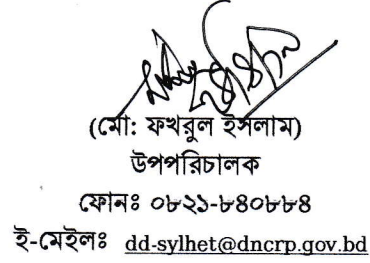 (মো: ফখরুল ইসলাম)
উপপরিচালক
ফোনঃ ০৮২১-৮৪০৮৮৪
ই-মেইলঃ dd-sylhet@dncrp.gov.bd